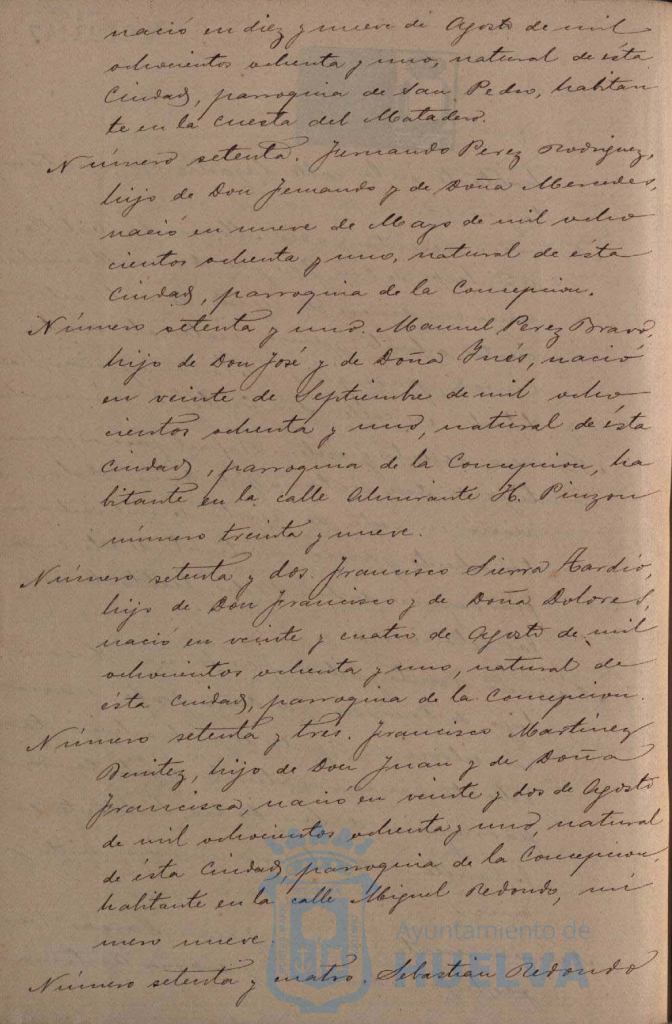 nació en diez y nueve de Agosto de mil
ochocientos ochenta y uno, natural de ésta
Ciudad, parroquia de San Pedro, habitan
te en la Cuesta del Matadero.
Número setenta. Fernando Perez Rodriguez,
hijo de Don Fernando y de Doña Mercedes,
nació en nueve de Mayo de mil ocho
cientos ochenta y uno, natural de ésta
Ciudad, parroquia de la Concepcion.
Número setenta y uno. Manuel Perez Bravo,
hijo de Don José y de Doña Inés, nació
en veinte de Septiembre de mil ocho
cientos ochenta y uno, natural de ésta
Ciudad, parroquia de la Concepcion, ha
bitante en la calle Almirante H. Pinzon
número treinta y nueve.
Número setenta y dos. Francisco Sierra Tardío,
hijo de Don Francisco y de Doña Dolores,
nació en veinte y cuatro de Agosto de mil
ochocientos ochenta y uno, natural de
ésta Ciudad, parroquia de la Concepcion.
Número setenta y tres. Francisco Martínez
Benitez, hijo de Don Juan y de Doña
Francisca, nació en veinte y dos de Agosto
de mil ochocientos ochenta y uno, natural
de ésta Ciudad, parroquia de la Concepcion,
habitante en la calle Miguel Redondo, nú
mero nueve.
Ayuntamiento de
HUELVA
Número setenta y cuatro. Sebastian Redondo